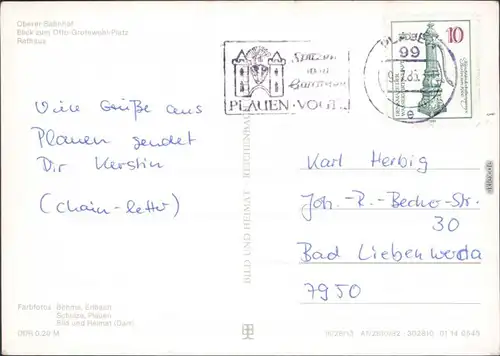 Oberer Bahnhof
Blick zum Otto-Grotewohl-Platz
Rathaus
Viele Grüße aus
Plauen sendet
Dir Kerstin
(Chain-letter)
Farbfotos: Böhme, Erlbach
Schulze, Plauen
Bild und Heimat (Darr)
DDR 0,20 M
BILD UND HEIMAT REICHENBACH
PLAUEN · VOGTL.
99
10
Karl Herbig
Joh.-R.-Becher-Str.
30
Bad Liebenwerda
7950